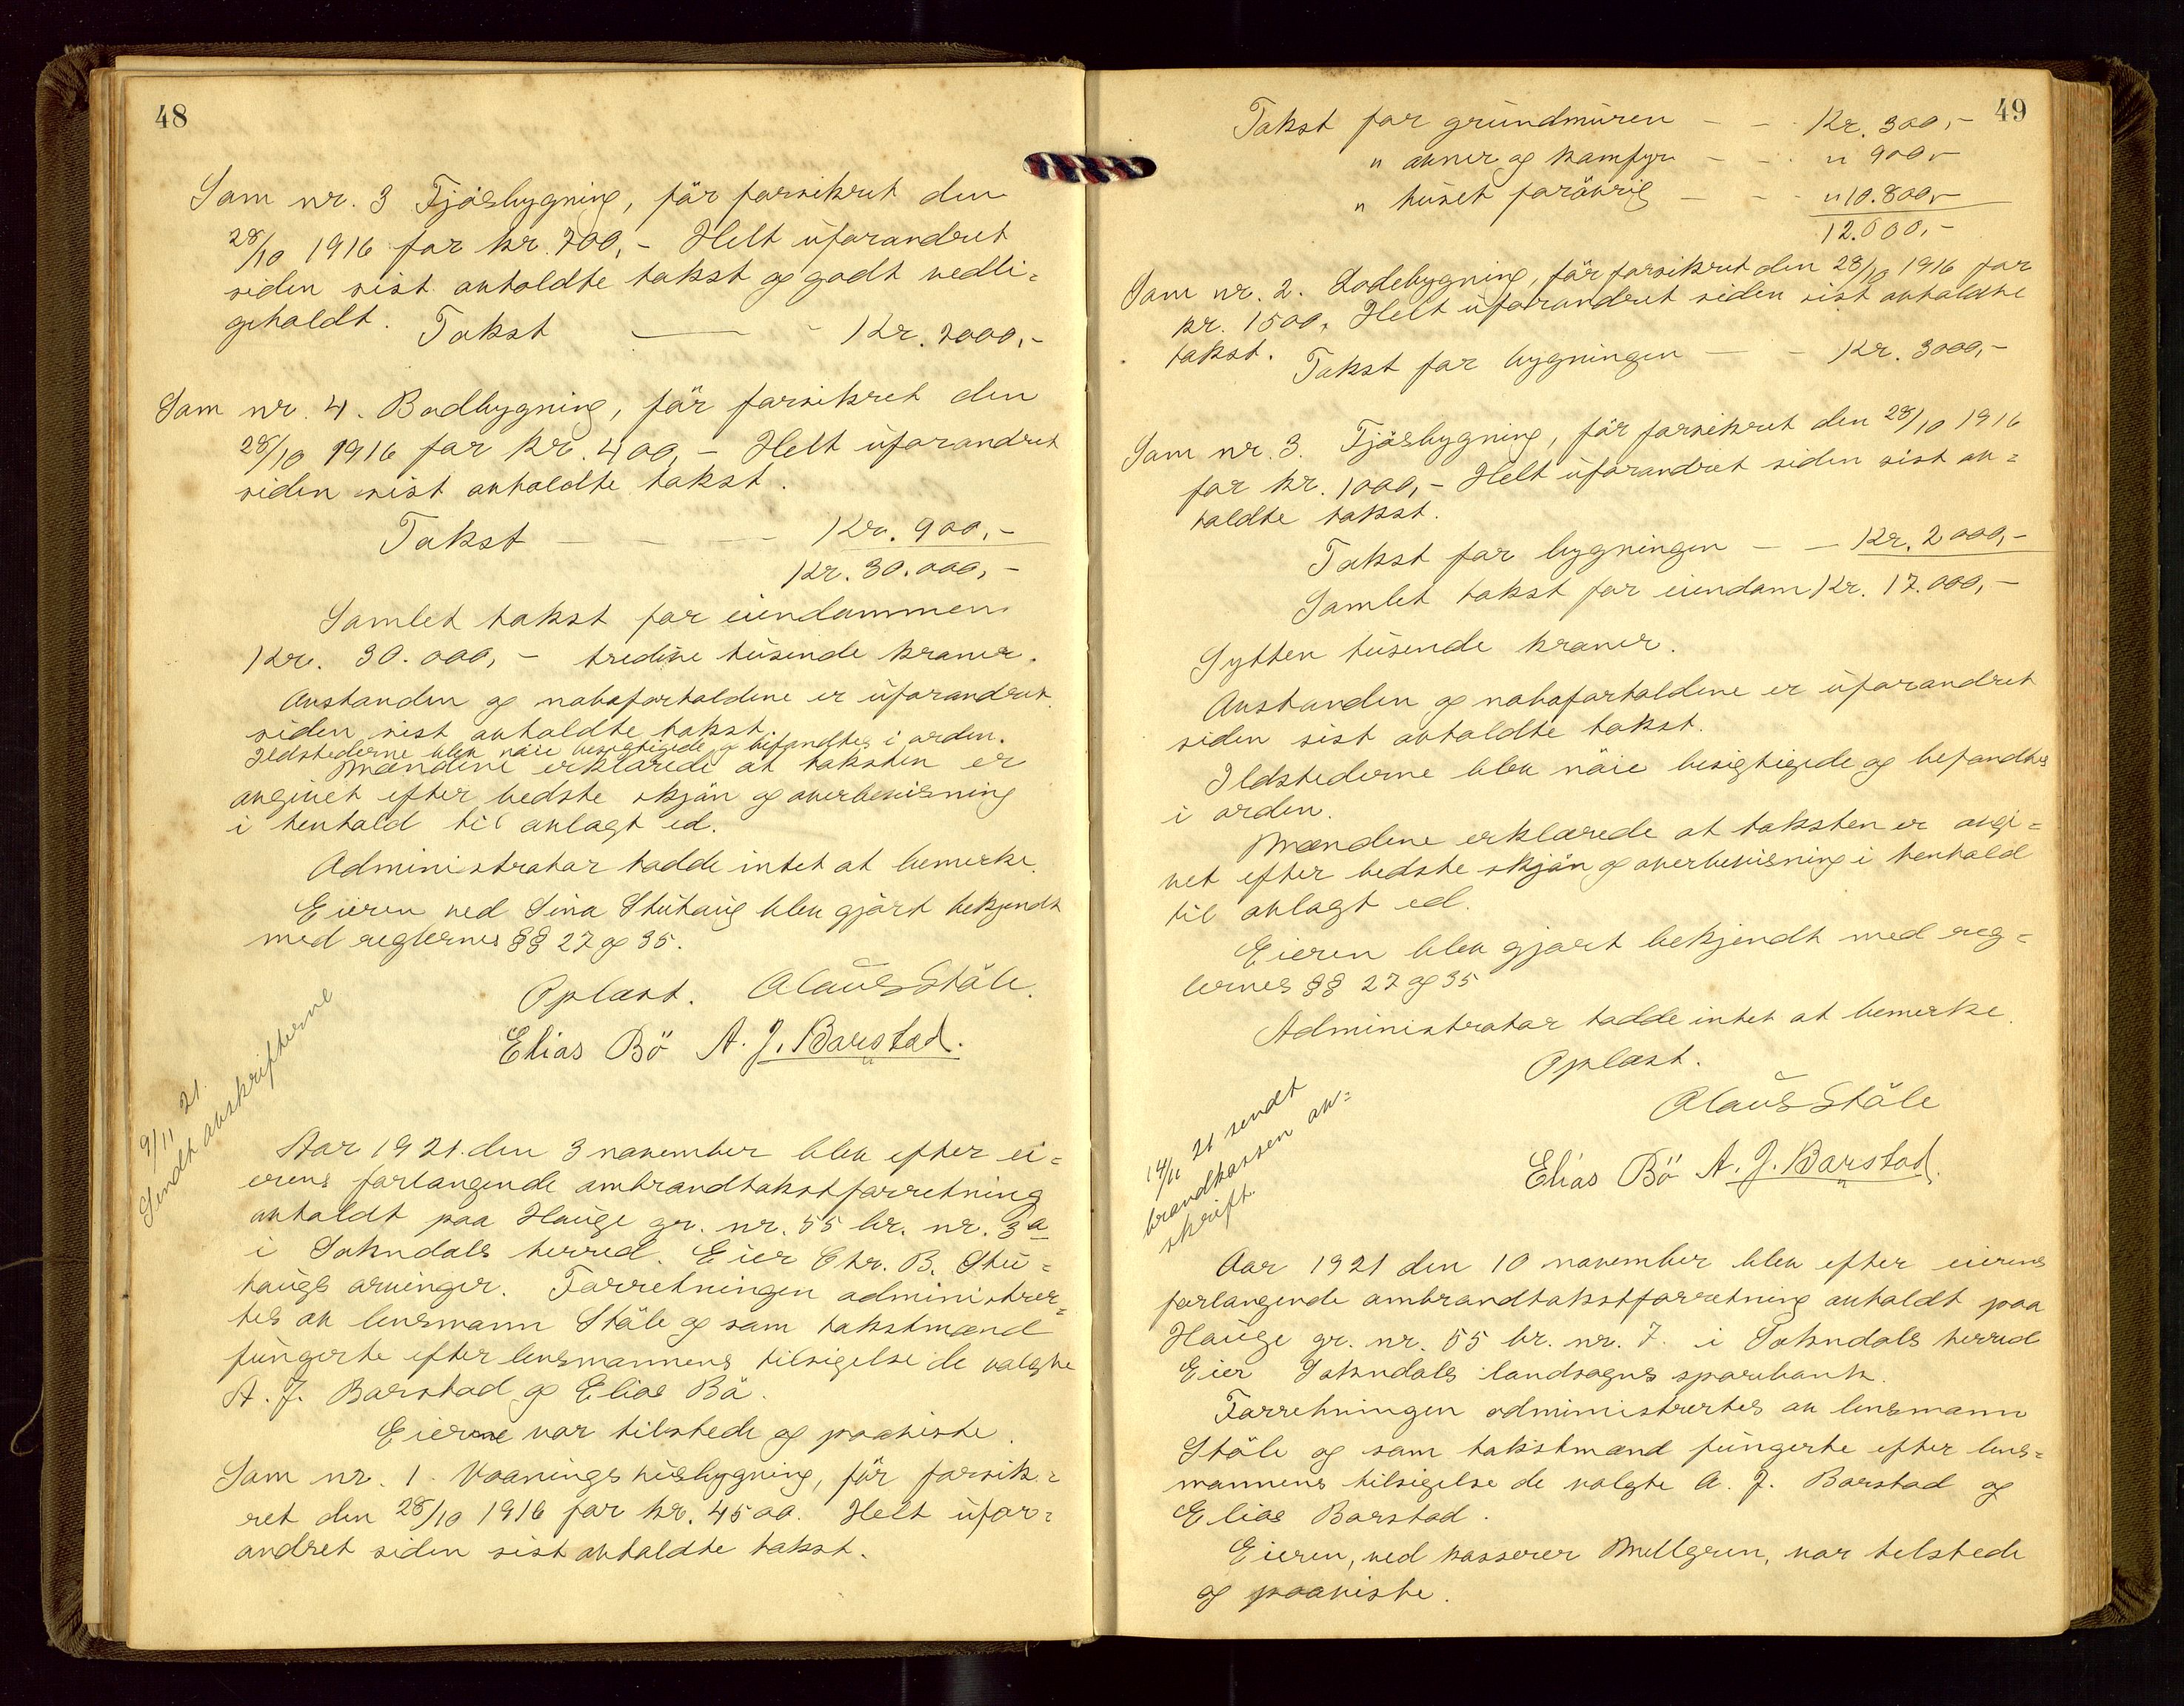 48
Som nr. 3 Fjösbygning, før forsikret den
28/10 1916 for kr. 700,- Helt uforandret
siden sist avholdte takst og godt vedli=
geholdt. Takst — - Kr. 2000,-
Som nr. 4. Bodbygning, før forsikret den
28/10 1916 for kr. 400,- Helt uforandret
siden sist avholdte takst.
Takst - - - Kr. 900,-
Kr. 30.000,-
Samlet takst for eiendommen
Kr. 30.000,- tredive tusende kroner.
Avstanden og naboforholdene er uforandret
siden sist avholdte takst.
Ildstederne blev nöie besigtigede og befandtes i orden.
Mændene erklærede at taksten er
avgivet efter bedste skjön og overbevisning
i henhold til avlagt ed.
Administrator hadde intet at bemerke.
Eieren ved Sina Stuhaug blev gjort bekjendt
med reglernes §§ 27 og 35.
Oplæst. Olaus Ståle.
Elias Bö A. J. Barstad.
9/11 21.
Sendt avskrifterne
Aar 1921 den 3 november blev efter ei=
erens forlangende ombrandtakstforretning
avholdt paa Hauge gr. nr. 55 br. nr. 3a
i Sokndals herred. Eier Chr. B. Stu=
haugs arvinger. Forretningen administrer=
tes av lensmann Ståle og som takstmænd
fungerte efter lensmannens tilsigelse de valgte
A. J. Barstad og Elias Bö.
Eierne var tilstede og paaviste.
Som nr. 1. Vaaningshusbygning, før forsik=
ret den 28/10 1916 for kr. 4500. Helt ufor=
andret siden sist avholdte takst.
49
Takst for grundmuren - - Kr. 300,-
" ovner og komfyr - - " 900,-
" huset forövrig - - - " 10.800,-
12.000,-
Som nr. 2. Lodebygning, før forsikret den 28/10 1916 for
kr. 1500, Helt uforandret siden sist avholdte
takst. Takst for bygningen - - Kr. 3000,-
Som nr. 3. Fjösbygning, før forsikret den 28/10 1916
for kr. 1000,- Helt uforandret siden sist av=
holdte takst.
Takst for bygningen - - Kr. 2000,-
Samlet takst for eiendom Kr. 17.000,-
Sytten tusende kroner.
Avstanden og naboforholdene er uforandret
siden sist avholdte takst.
Ildstederne blev nöie besigtigede og befandtes
i orden.
Mændene erklærede at taksten er avgi=
vet efter bedste skjön og overbevisning i henhold
til avlagt ed.
Eieren blev gjort bekjendt med reg=
lernes §§ 27 og 35
Administrator hadde intet at bemerke.
Oplæst.
Olaus Ståle
Elias Bö A. J. Barstad.
14/11 21 sendt
brandkassen av=
skrift.
Aar 1921 den 10 november blev efter eierens
forlangende ombrandtakstforretning avholdt paa
Hauge gr. nr. 55 br. nr. 7. i Sokndals herred
Eier Sokndals landsogns sparebank.
Forretningen administrertes av lensmann
Ståle og som takstmænd fungerte efter lens=
mannens tilsigelse de valgte A. J. Barstad og
Elias Barstad.
Eieren, ved kasserer Mellgren, var tilstede
og paaviste.